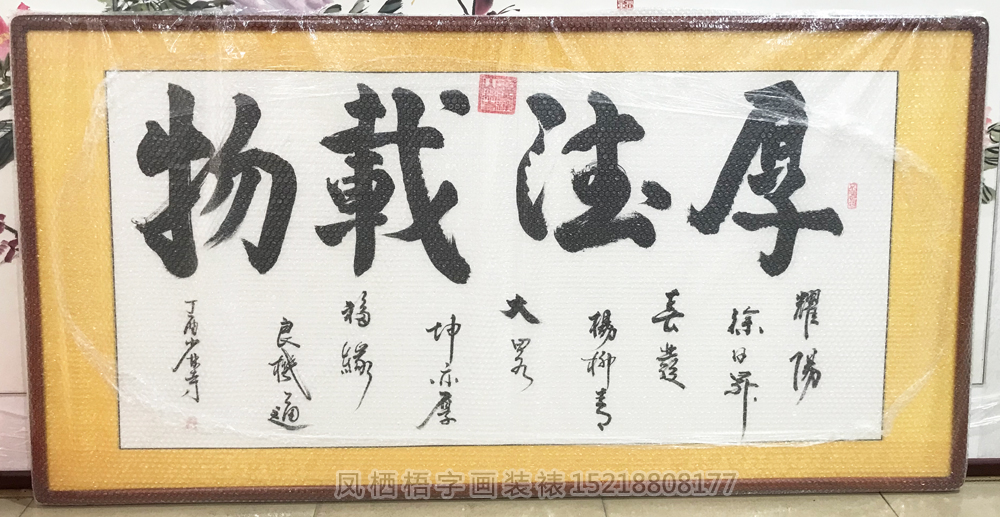 厚德載物
耀陽
徐日昇
春發
楊柳青
大畧
坤亦厚
福緣
良機通
丁酉
凤栖梧字画装裱15218808177